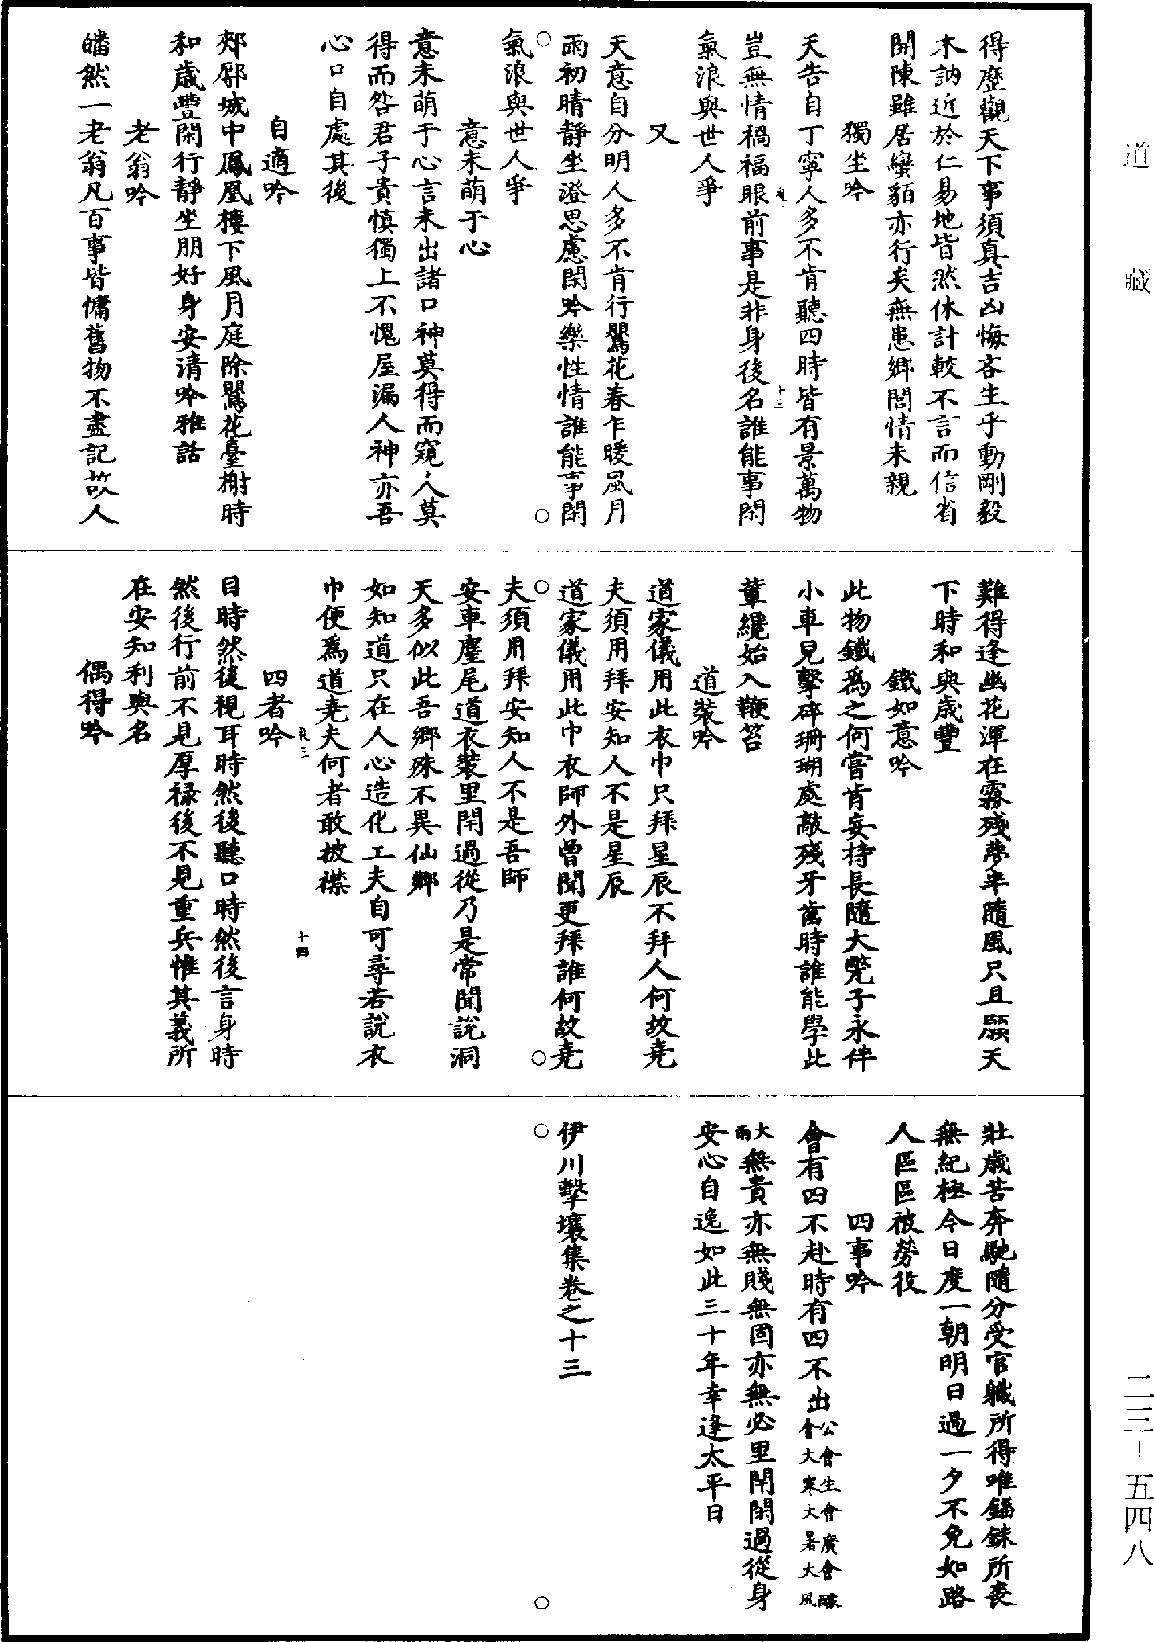 道藏
得歷觀天下事須真吉凶悔吝生乎動剛毅
木訥近於仁易地皆然休計較不言而信省
開陳雖居蠻貊亦行矣無患鄉閭情未親
獨坐吟
天告自丁寧人多不肯聽四時皆有景萬物
豈無情禍福眼前事是非身後名誰能事閑
氣浪與世人爭
又
天意自分明人多不肯行鸎花春乍暖風月
雨初晴靜坐澄思慮閑吟樂性情誰能事閑
氣浪與世人爭
意未萌于心
意未萌于心言未出諸口神莫得而窺人莫
得而咎君子貴慎獨上不愧屋漏人神亦吾
心口自處其後
自適吟
郟鄏城中鳳凰樓下風月庭除鸎花臺榭時
和歲豐閑行靜坐朋好身安清吟雅話
老翁吟
皤然一老翁凡百事皆慵舊物不盡記故人
難得逢幽花渾在霧殘夢半隨風只且願天
下時和與歲豐
鐵如意吟
此物鐵爲之何嘗肯妄持長隨大𣰽子永伴
小車兒擊碎珊瑚處敲殘牙齒時誰能學此
輩纔始入鞭笞
道裝吟
道家儀用此衣巾只拜星辰不拜人何故堯
夫須用拜安知人不是星辰
道家儀用此巾衣師外曾聞更拜誰何故堯
夫須用拜安知人不是吾師
安車麈尾道衣裝里閈過從乃是常聞說洞
天多似此吾鄉殊不異仙鄉
如知道只在人心造化工夫自可尋若說衣
巾便爲道堯夫何者敢披襟
四者吟
十四
目時然後視耳時然後聽口時然後言身時
然後行前不見厚祿後不見重兵惟其義所
在安知利與名
偶得吟
壯歲苦奔馳隨分受官職所得唯錙銖所喪
無紀極今日度一朝明日過一夕不免如路
人區區被勞役
四事吟
會有四不赴時有四不出公會生會廣會醵會大寒大暑大風
大雨無貴亦無賤無固亦無必里閈閑過從身
安心自逸如此三十年幸逢太平日
伊川擊壤集卷之十三
二三-五四八